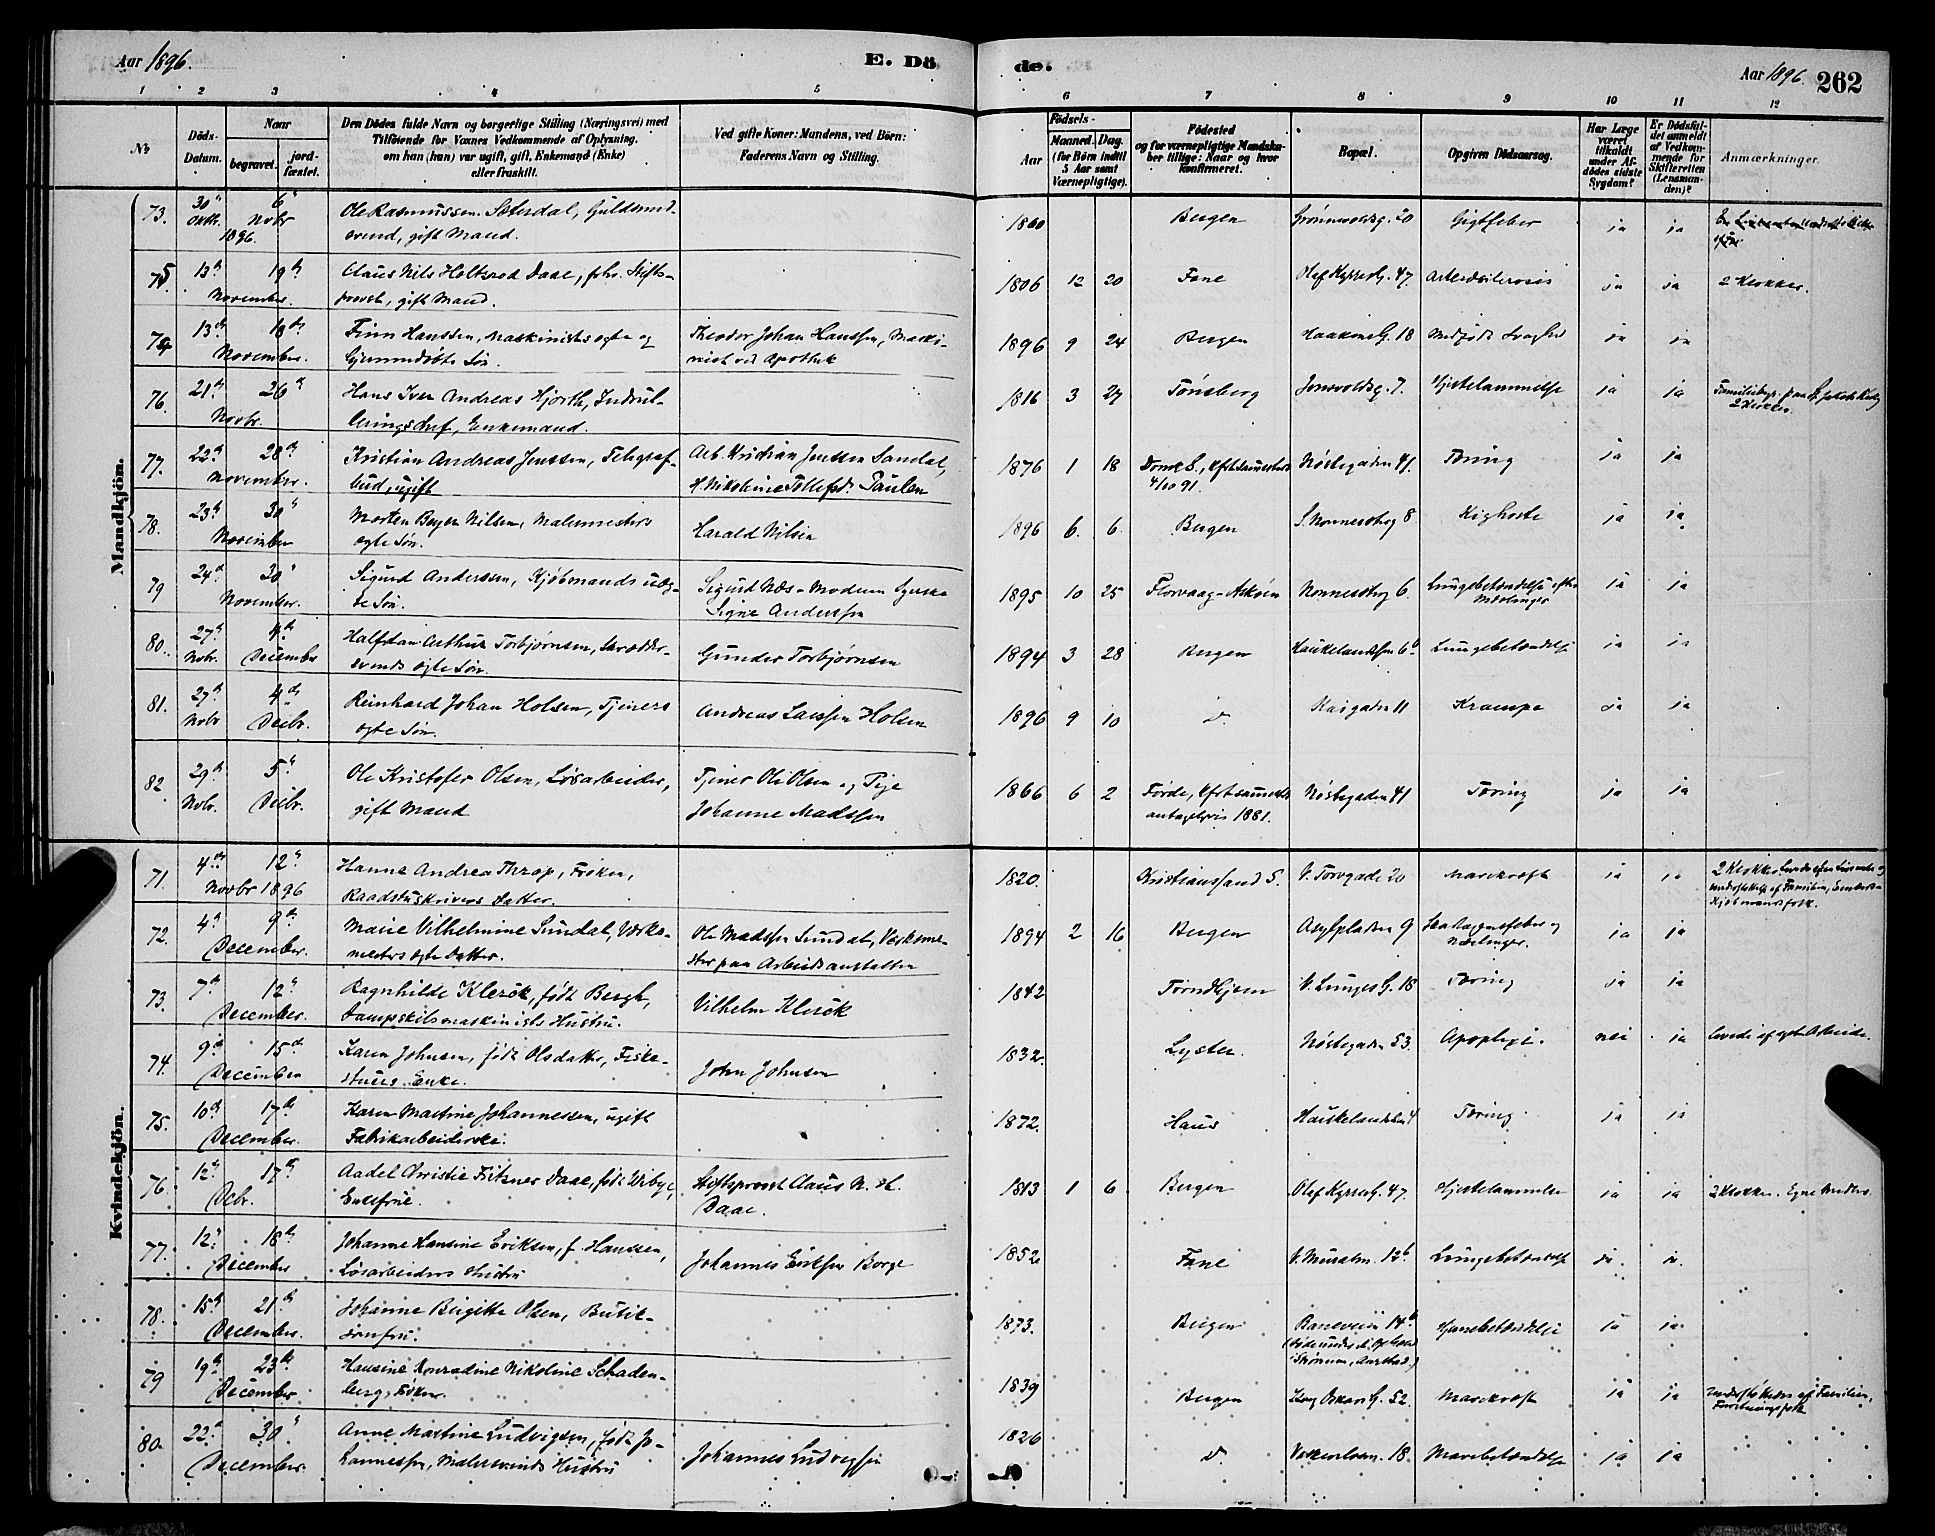 Aar 1896.
E. Dö
de.
Aar 1896.
262
1 2 3 4 5 6 7 8 9 10 11 12
№
Döds-
Datum.
Naar
begravet.
jord-
fæstet.
Den Dödes fulde Navn og borgerlige Stilling (Næringsvei) med
Tilföiende for Voxnes Vedkommende af Oplysning,
om han (hun) var ugift, gift, Enkemand (Enke)
eller fraskilt.
Ved gifte Koner: Mandens, ved Börn:
Faderens Navn og Stilling.
Födsels-
Aar
Maaned.
Dag.
(for Börn indtil
5 Aar samt
Værnepligtige).
Födested
og for værnepligtige Mandska-
ber tillige: Naar og hvor
konfirmeret.
Bopæl.
Opgiven Dödsaarsag.
Har Læge
været
tilkaldt
under Af-
dödes sidste
Sygdom?
Er Dödsfal-
det anmeldt
af Vedkom-
mende for
Skifteretten
(Lensman-
den)?
Anmærkninger.
Mandkjön.
73. 30 Oktbr. 6 Novbr 1896. Ole Rasmussen Sæterdal, Guldsmed-
svend, gift Mand. 1860 Bergen Grønnevoldsg. 20 Gigtfeber ja ja
75 13 19 November. Claus Nils Holtzred Daae, fhv. Stifts-
provst, gift Mand. 1806 12 20 Fane Olef Kyrresg. 47. Arteriosclerosis ja ja 2 Klokker.
74 13 18 November. Finn Hanssen, Maskinistes ægte og
hjemmedøbte Søn. Theodor Johan Hanssen, Maski-
nist ved Apothek 1896 9 24 Bergen Haakons G. 18 Medfødt Svaghed ja ja
76. 21 26 Novbr. Hans Iver Andreas Hjorth, Indrul-
leringschef, Enkemand. 1816 3 27 Tønsberg Jonsvoldsg. 7. Hjertelammelse ja ja 2 Klokker.
77. 22 28 November. Kristian Andreas Jenssen, Telegraf-
bud, ugift Arb Kristian Jenssen Sandal,
1876 1 18 4/10 91. Nøstegaden 41. Tæring ja ja
78. 23 30 November Morten Beyer Nilsen, Malermesters
ægte Søn. Harald Nilsen 1896 6. 6. Bergen S. Nonnesstrøg 8. Kighoste ja ja
79 24 30 November. Sigurd Anderssen, Kjøbmands uæg-
te Søn. Sigurd Næs - Moderen Syerske
Signe Anderssen 1895 10 25 Florvaag - Askøen Nonnesstrøg 6. Lungebetændelse efter
Mæslinger ja ja
80. 27 Nobr. 4 December Halfdan Arthur Torbjørnsen, Skrædder-
svends ægte Søn. Gunder Torbjørnsen 1894 3 28 Bergen Haukelandsvn 6b Lungebetændelse ja ja
81. 27 Nobr 4 Decbr. Reinhard Johan Holsen, Tjeners
ægte Søn. Andreas Larssen Holsen 1896 9 10 Kaigaden 11 Krampe ja ja
82. 29 Nobr. 5 Decbr. Ole Kristofer Olsen, Løsarbeider,
gift Mand Tjener Ole Olsen og Pige
Johanne Madssen 1866 6 2 Førde, 1881. Nøstegaden 41 Tæring ja ja
Kvindekjön.
71. 4 12 Novbr 1896 Hanne Andrea Thrap, Frøken,
Raadstuskrivers Datter. 1820. Kristianssand S. V. Torvgade 20 Marekræft ja ja 2 Klokker.
72. 4 9 December. Marie Vilhelmine Sundal, Værks-
mesters ægte Datter. Ole Madssen Sundal, Værksme-
ster paa Arbeidsanstalten 1894 2 16 Bergen Asylpladsen 9 Skarlagensfeber og
Mæslinger. ja ja
73. 7 12 December. Ragnhilde Klerck, født Bergh,
Dampskibsmaskinists Hustru. Vilhelm Klerck 1842 Trondhjem V. Lunges G. 18 Tæring ja ja
74. 9 15 December Karen Johnsen, født Olsdatter, Fiske-
stuers Enke. John Johnsen 1832. Lyster. Nøstegaden 53. Apoplexi. nei ja levede af eget Arbeide.
75. 10 17 December. Karen Martine Johannessen, ugift
Fabrikarbeiderske. 1872. Haus Haukelandsvn 4 Tæring ja ja
76. 12 17 Debr. Aadel Christie Fritzner Daae, født Wiby,
Enkefrue. Stiftsprovst Claus N. H.
Daae. 1813 1 6 Bergen Olef Kyrresg. 47. Hjertelammelse ja ja 2 Klokker. Egne Midler.
77. 12 18 December Johanne Hansine Eriksen, f. Hanssen,
Løsarbeiders Hustru Johannes Eriksen Borge 1852. Fane V. Muralm. 12b Lungebetændelse ja. ja.
78. 15 21 December. Johanne Birgitte Olsen, Butik-
jomfru. 1873. Bergen Baneveien 14b Hjernebetændelse ja ja
79 19 23 December Hansine Konradine Nikoline Schaden-
berg, Frøken. 1839 Bergen Kong Oskars G. 52. Marekræft ja ja
80. 22 30 December. Anne Martine Ludvigsen, født Jo-
hannessen, Malersvends Hustru Johannes Ludvigsen 1826 18. Mavebetændelse ja ja